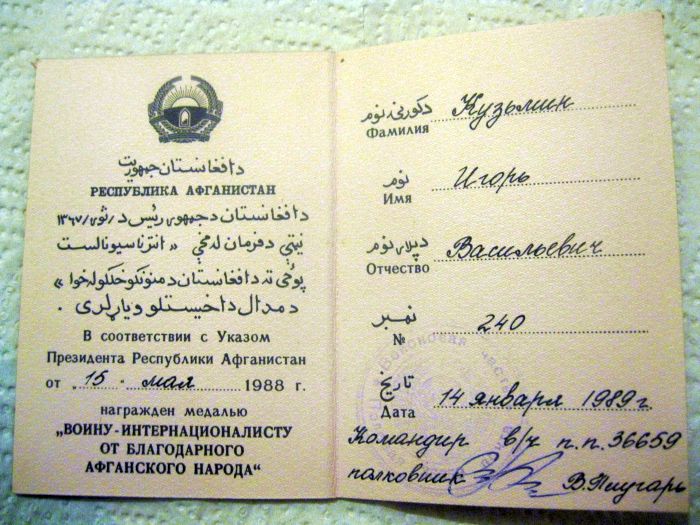 دافغانستان جمهوریت
РЕСПУБЛИКА АФГАНИСТАН
دافغانستان دجمهوری رئیس د/ثور/۱۳۶۷
نیټی دفرمان له مخی « انترناسیونالست
پوځی ته دافغانستان دمنونکوخلکولهخوا»
دمدال داخیستلو ویاړلری .
В соответствии с Указом
Президента Республики Афганистан
от „15" мая 1988 г.
награжден медалью
„ВОИНУ-ИНТЕРНАЦИОНАЛИСТУ
ОТ БЛАГОДАРНОГО
АФГАНСКОГО НАРОДА“
دکورنۍ نوم
Кузьмин
Фамилия
نوم
Игорь
Имя
دپلار نوم
Васильевич
Отчество
نمبر
240
№
تاریخ
14 января 1989г
Дата
Командир в/ч п.п. 36659
полковник